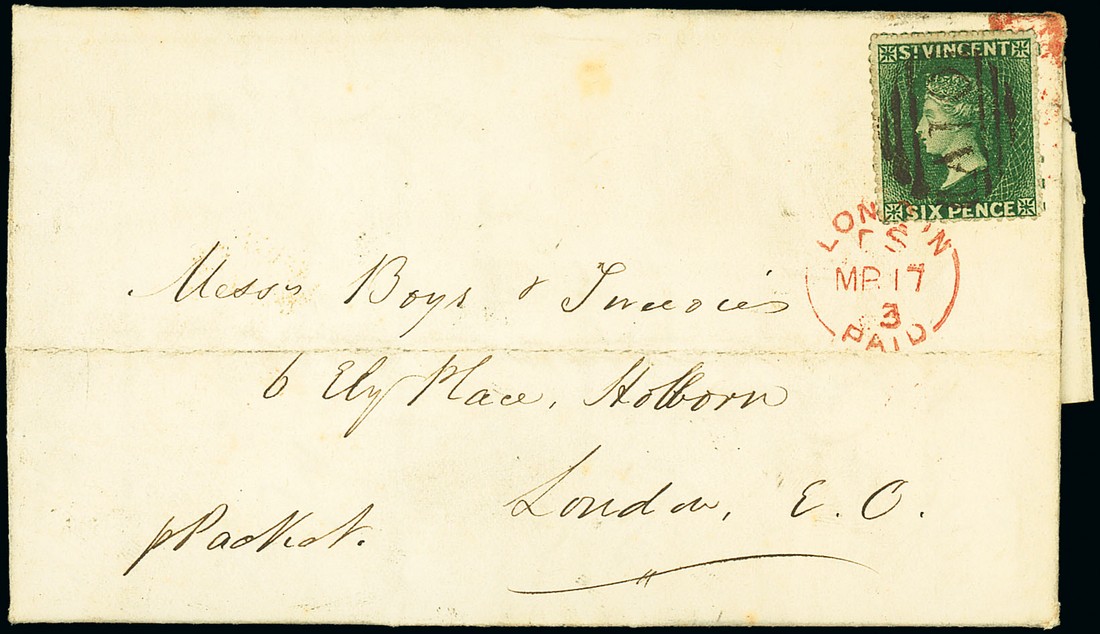 ST VINCENT
A10
SIX PENCE
LONDON
MR 17
3
PAID
Messrs Boys & Tweedies
6 Ely Place, Holborn
London, E. C.
p Packet.